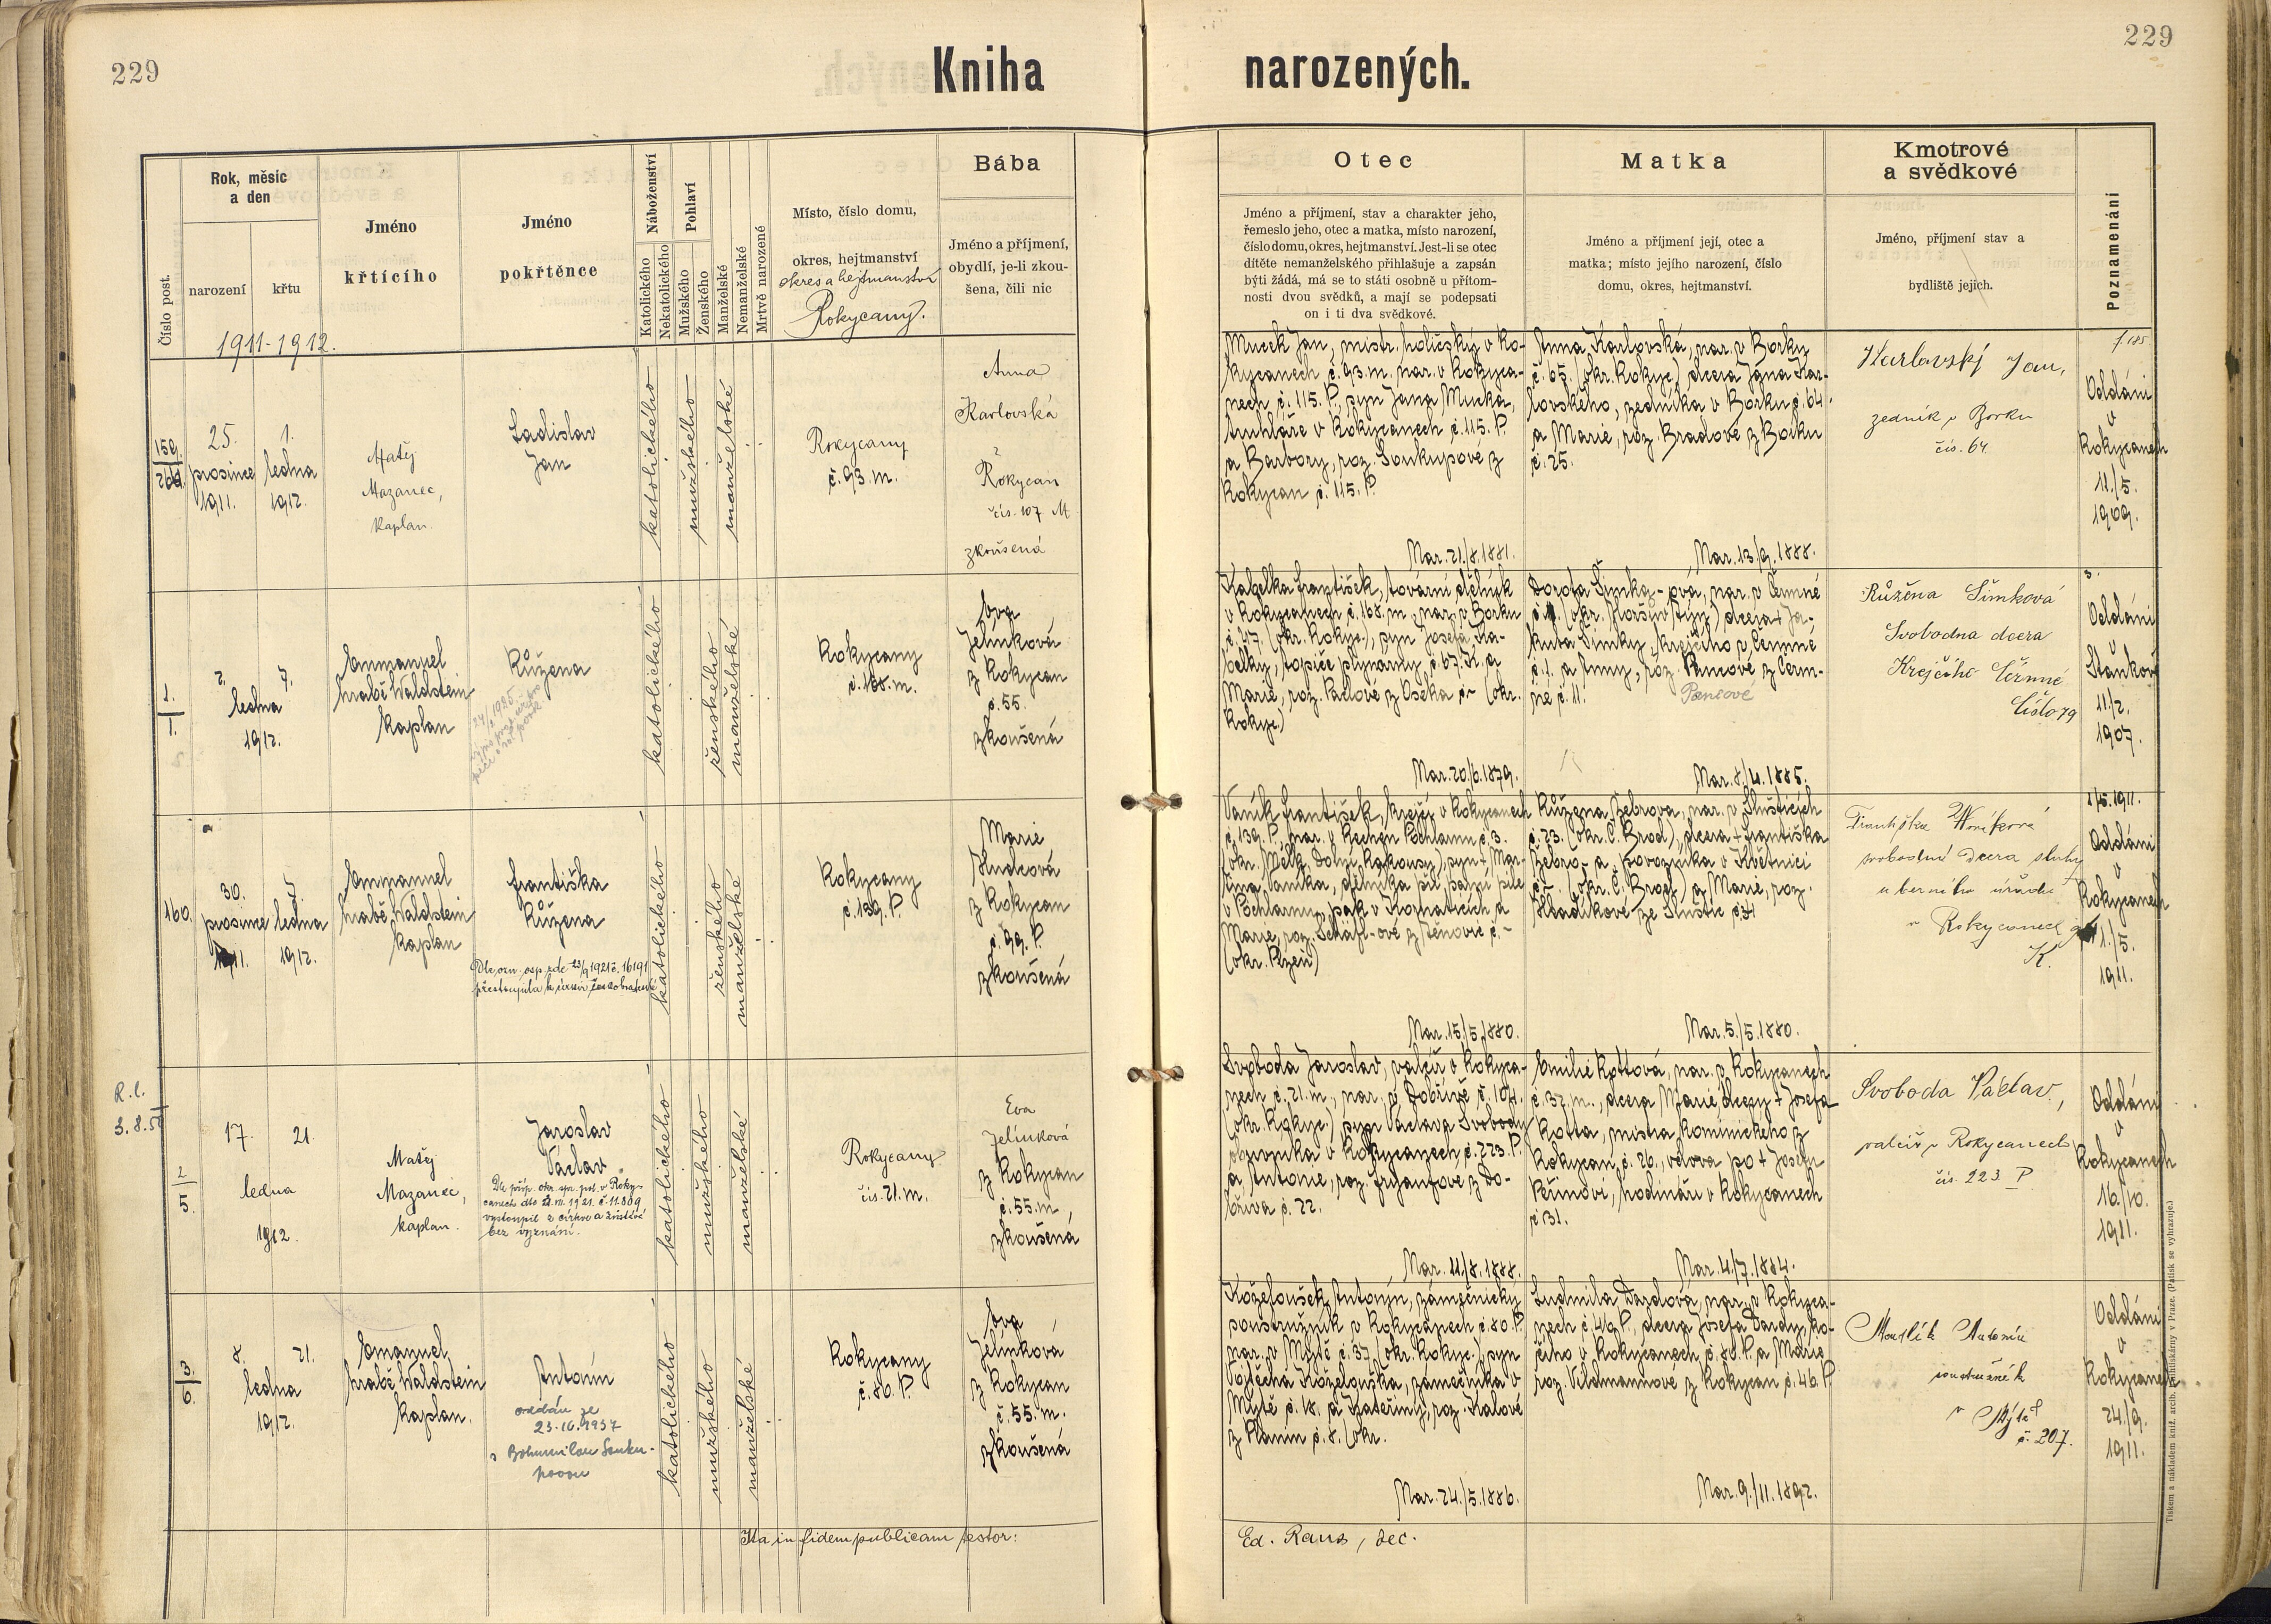 229
Kniha
narozených.
229
Číslo post.
Rok, měsíc
a den
narození
křtu
1911-1912.
Jméno
křtícího
Jméno
pokřtěnce
Náboženství
Katolického
Nekatolického
Pohlaví
Mužského
Ženského
Manželské
Nemanželské
Mrtvě narozené
Místo, číslo domu,
okres, hejtmanství
okres a hejtmanství
Rokycany.
Bába
Jméno a příjmení,
obydlí, je-li zkou-
šena, čili nic
Otec
Jméno a příjmení, stav a charakter jeho,
řemeslo jeho, otec a matka, místo narození,
číslo domu, okres, hejtmanství. Jest-li se otec
dítěte nemanželského přihlašuje a zapsán
býti žádá, má se to státi osobně u přítom-
nosti dvou svědků, a mají se podepsati
on i ti dva svědkové.
Matka
Jméno a příjmení její, otec a
matka; místo jejího narození, číslo
domu, okres, hejtmanství.
Kmotrové
a svědkové
Jméno, příjmení stav a
bydliště jejich.
Poznamenání
159.
25.
prosince
1911.
1.
ledna
1912.
Matěj
Mazanec,
kaplan.
Ladislav
Jan
katolického
mužského
manželské
Rokycany
č. 93. m.
Anna
Karlovská
z
Rokycan
čís. 107 M
zkoušená
Mucek Jan, mistr. holičský v Ro-
kycanech č. 93. m. nar. v Rokyca-
nech č. 115. P., syn Jana Mucka,
truhláře v Rokycanech č. 115. P.
a Barbory, roz. Soukupové z
Rokycan č. 115. P.
Mar. 21./8. 1881.
Anna Karlovská, nar. v Borku
č. 65. (okr. Rokyc.) dcera Jana Kar-
lovského, zedníka v Borku č. 64.
a Marie, roz. Bradové z Borku
č. 25.
Mar. 13./9. 1888.
Karlovský Jan,
zedník v Borku
čís. 64.
Oddáni
v
Rokycanech
11./5.
1909.
1.
1.
2.
7.
ledna
1912.
Emmanuel
hrabě Waldstein
kaplan
Růžena
katolického
ženského
manželské
Rokycany
č. 168. m.
Eva
Jelínková
z Rokycan
č. 55.
zkoušená
Kabelka František, tovární dělník
v Rokycanech č. 168. m., nar. v Borku
č. 47. (okr. Rokyc.), syn Josefa Ka-
belky, topiče plynárny č. 67. K. a
Marie, roz. Pachové z Oseka č. - (okr.
Rokyc.)
Mar. 20./6. 1879.
Dorota Šimků-ová, nar. v Čermné
dcera + Ja-
kuba Šimky, krejčího v Čermné
č. 1. a Anny, roz. Pancové z Čerm-
né č. 11.
Pencové
Mar. 8./4. 1885.
Růžena Šimková
Svobodna dcera
Krejčího Čermné
Číslo 79
Oddáni
v
Staňkově
11./2.
1907.
160.
30.
prosince
1911.
ledna
1912.
Emmanuel
hrabě Waldstein
kaplan
Františka
Růžena
Dle ozn. osp. zde 23/9 1921 č. 16191
přestoupila k církvi českobratrské
katolického
ženského
manželské
Rokycany
č. 139. P.
Marie
Hudcová
z Rokycan
č. 99. P.
zkoušená
Vaník František, krejčí v Rokycanech
č. 139. P. nar. v
syn + Mar-
tina Vaníka, dělníka při parní pile
v Pöchlarnu, pak v Kornaticích a
Marie, roz.
(okr. Plzeň)
Mar. 15./5. 1880.
Růžena Žebrova, nar. v Sluštících
č. 23. (okr. Č. Brod), dcera + Františka
Žebro-a, povozníka v Květnici
č. - (okr. Č. Brod) a Marie, roz.
Hladíkové ze Sluštic
Mar. 5./5. 1880.
Františka
svobodná dcera sluhy
u berního úřadu
v Rokycanech
K.
1/5. 1911.
Oddáni
v
Rokycanech
1./5.
1911.
R. l.
3. 8. 5
2
5.
17.
21.
ledna
1912.
Matěj
Mazanec,
kaplan.
Jaroslav
Václav
Dle příp. okr. spr. pol. v Roky-
canech dto 1921. č. 11.809
vystoupil z církve a zůstává
bez vyznání.
katolického
mužského
manželské
Rokycany
čís. 21. m.
Eva
Jelínková
z Rokycan
č. 55. m,
zkoušená
Svoboda Jaroslav, valcíř v Rokyca-
nech č. 21. m., nar. v Dobřívě č. 104.
(okr. Rokyc.) syn Václava Svobody
v Rokycanech, č. 223. P.
a Antonie, roz. z Do-
bříva č. 22.
Mar. 11./8. 1888.
Emilie Kottová, nar. v Rokycanech
č. 37. m., dcera Marie, dcery + Josefa
Kotta, mistra kominického z
Rokycan č. 26., vdova po + Josefu
hodináři v Rokycanech
č. 31.
Mar. 4./7. 1884.
Svoboda Václav,
valcíř v Rokycanech
čís. 223 P
Oddáni
v
Rokycanech
16./10.
1911.
3
6.
8.
21.
ledna
1912.
Emanuel
hrabě Waldstein
kaplan.
Antonín
oddán ze
23.10.1937
s Bohumilou Souku-
povou
katolického
mužského
manželské
Rokycany
č. 80. P.
Eva
Jelínková
z Rokycan
č. 55. m.
zkoušená
Koželoušek Antonín, zámečnický
soustružník v Rokycanech č. 80. P.
nar. v Mýtě č. 37. (okr. Rokyc.), syn
Vojtěcha Koželouška, zámečníka v
Mýtě č. 18. a Kateřiny, roz. Kalové
z Planin č. 8. (okr.
Mar. 24./5. 1886.
Ludmila Dardová, nar. v Rokyca-
nech č. 46 P., dcera Josefa Dardy, ko-
čího v Rokycanech č. 80. P. a Marie
roz. Vildmannové z Rokycan č. 46. P.
Mar. 9./11. 1892.
Moudlík Antonín
soustružník
v Mýtě
č. 207.
Oddáni
v
Rokycanech
24./9.
1911.
Ita in fidem publicam testor:
Ed. Raus, dec.